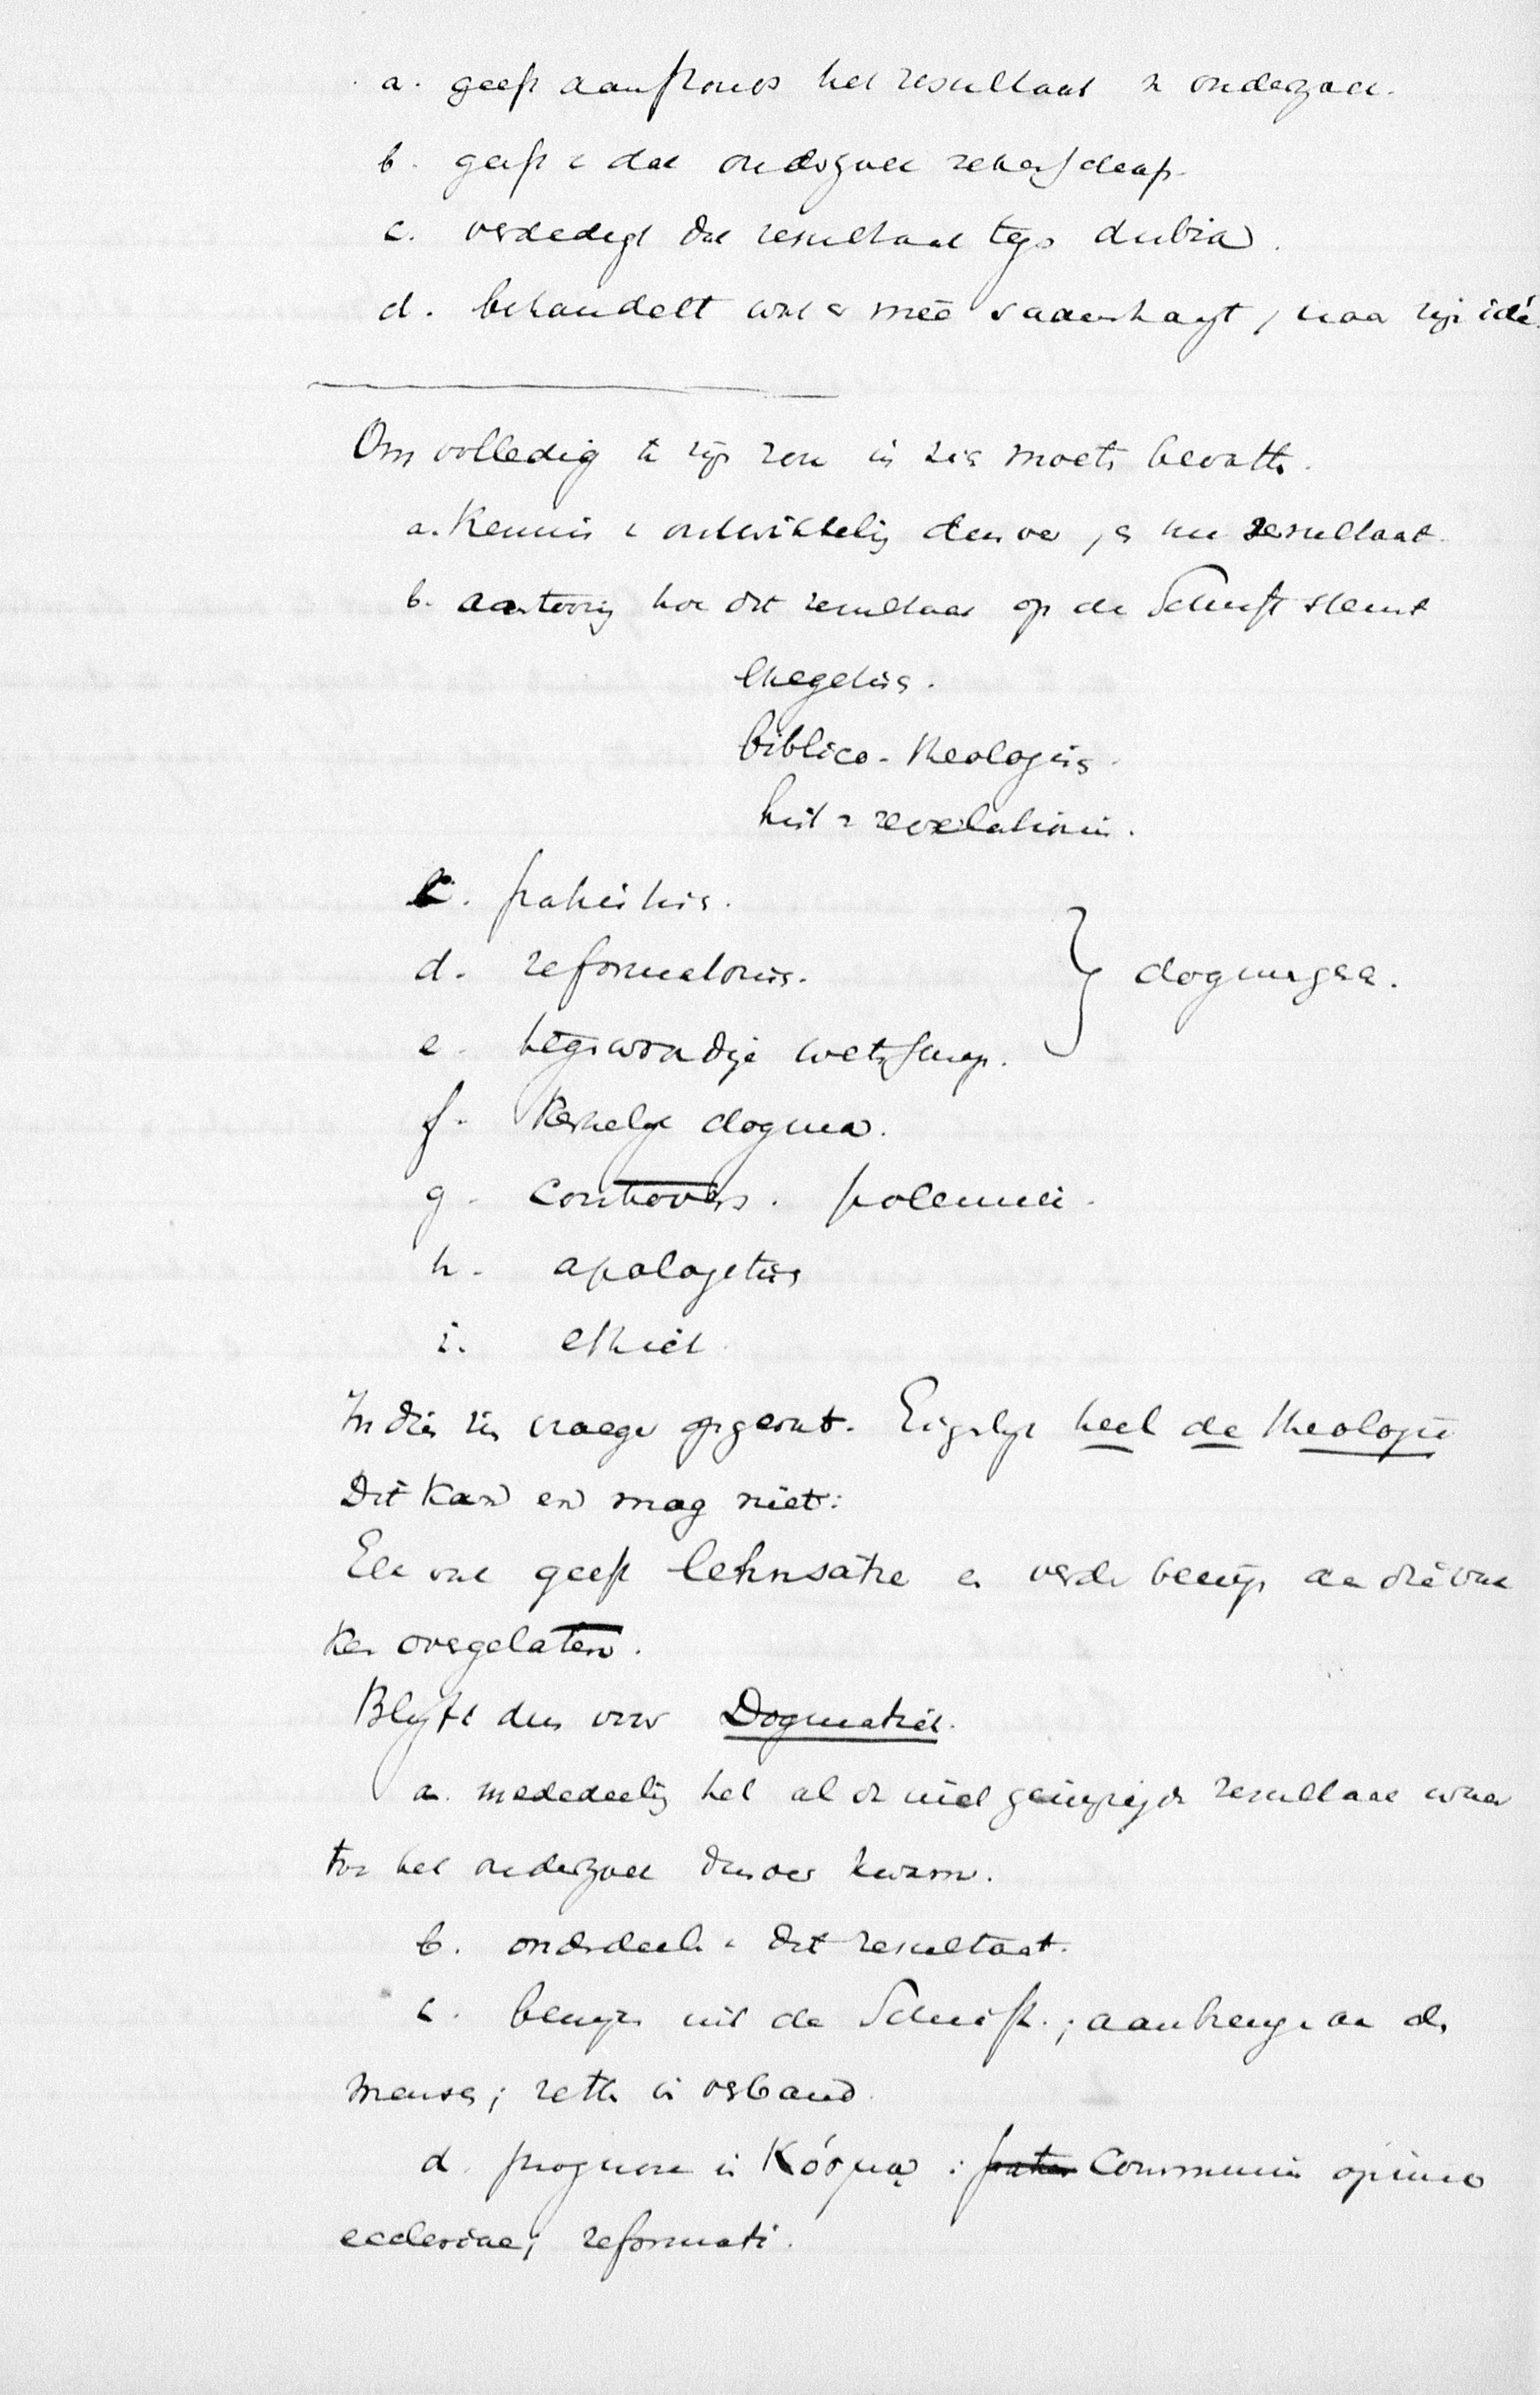 a. geeft aanstonds het resultaat v onderzoek.
b. geeft v dat onderzoek rekenschap.
c. verdedigt dat resultaat tegen dubia.
d. behandelt wat er mêe saamhangt, naar zijn idé.
Om volledig te zijn zou in zich moeten bevatten.
a. Kennis v ontwikkeling dusver, en nu resultaat.
b. aantoning hoe dit resultaat op de Schrift steunt
exegetisch.
biblico-theologisch.
hist v revelationis.
c. patristisch.
d. reformatorisch.
e. tegenwoordige wetenschap.
} dogmengesch.
f. Kerkelijk dogma.
g. controvers. polemiek.
h. apologetisch
i. ethiek.
In dien zin vroeger opgevat. Eigenlijk heel de theologie
Dit kan en mag niet:
Elk vak geeft Lehnsätze en verder bewijs aan die vak
ken overgelaten.
Blijft dus voor Dogmatiek.
a. mededeeling het al of niet gewijzigde resultaat waar
toe het onderzoek dusver kwam.
b. onderdeelen v dit resultaat.
c. bewijs uit de Schrift.; aanhangen aan de
mensch; zetten in verband.
d. prognose in Κόσμῳ: Communis opinio
ecclesiae; reformati.